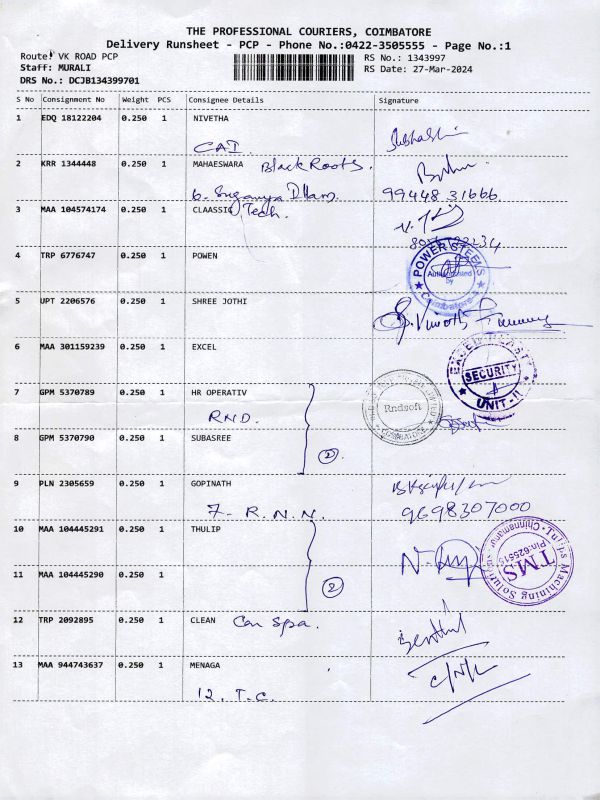 THE PROFESSIONAL COURIERS, COIMBATORE
Delivery Runsheet - PCP - Phone No.:0422-3505555 - Page No.:1
Route: VK ROAD PCP
Staff: MURALI
DRS No.: DCJB134399701
RS No.: 1343997
RS Date: 27-Mar-2024
S No Consignment No Weight PCS Consignee Details Signature
1 EDQ 18122204 0.250 1 NIVETHA
CAI
2 KRR 1344448 0.250 1 MAHAESWARA Black Roots.
6. Suganya Dham. 99448 31666
3 MAA 104574174 0.250 1 CLAASSIC Tech.
4 TRP 6776747 0.250 1 POWEN
POWER STEELS
Coimbatore
5 UPT 2206576 0.250 1 SHREE JOTHI
6 MAA 301159239 0.250 1 EXCEL
SECURITY
UNIT-II
7 GPM 5370789 0.250 1 HR OPERATIV
RND.
Rndsoft
COIMBATORE
8 GPM 5370790 0.250 1 SUBASREE
2
9 PLN 2305659 0.250 1 GOPINATH
7- R.N.N. 9698307000
10 MAA 104445291 0.250 1 THULIP
Tulips Machining Solutions
TMS
11 MAA 104445290 0.250 1
2
12 TRP 2092895 0.250 1 CLEAN Car Spa.
Senthil
13 MAA 944743637 0.250 1 MENAGA
12. T.C.